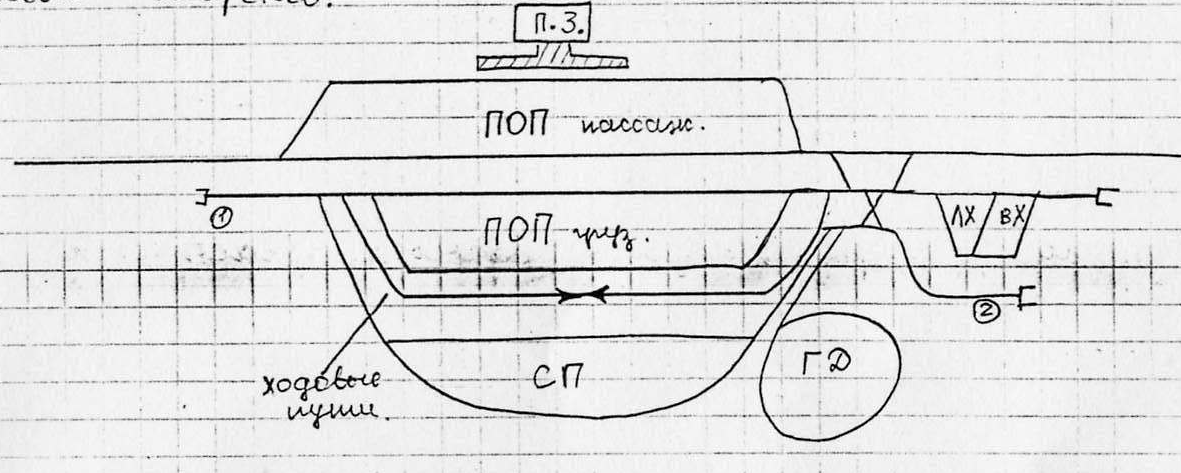 П.З.
ПОП пассаж.
①
ПОП груз.
ЛХ ВХ
②
ходовые
пути.
СП
ГД